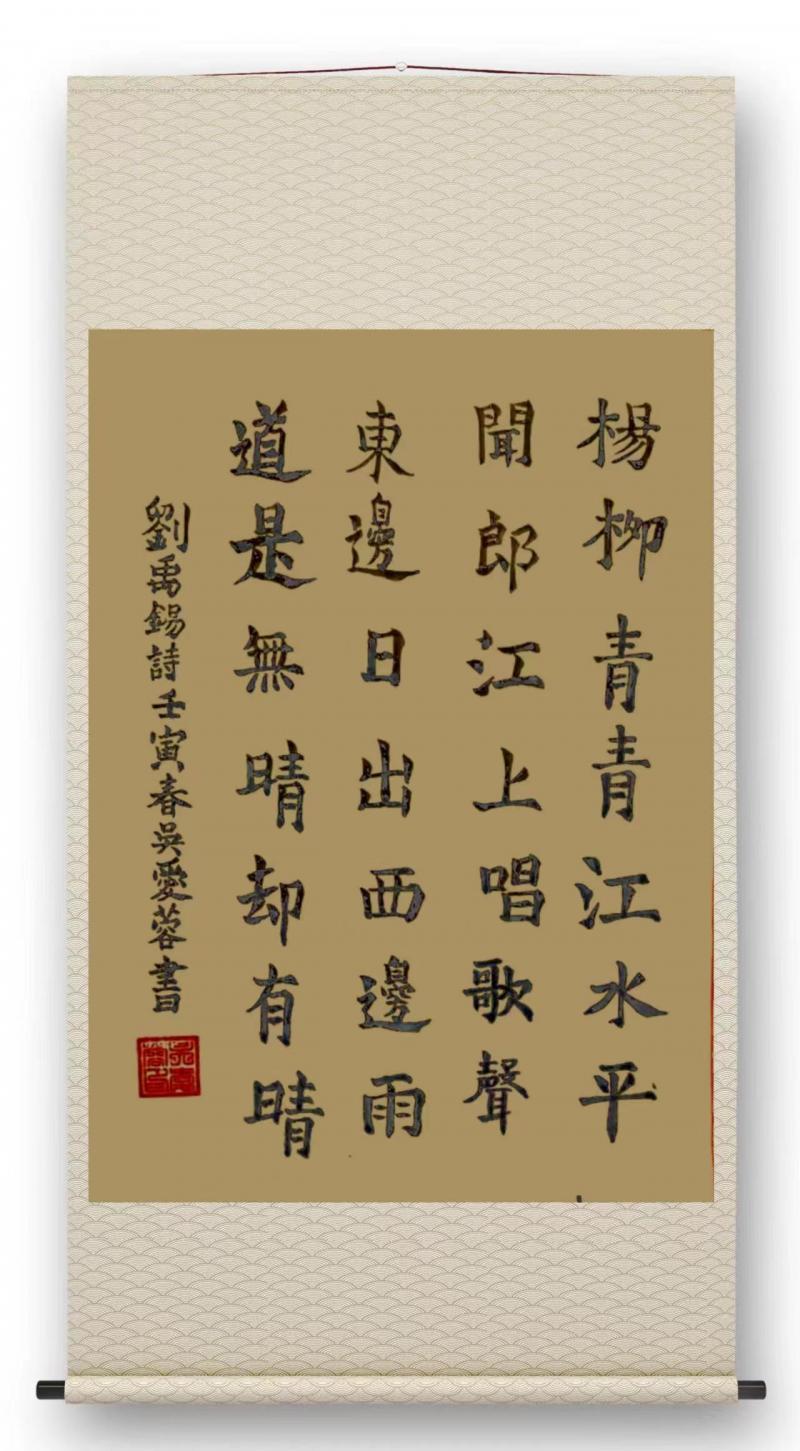 楊柳青青江水平
聞郎江上唱歌聲
東邊日出西邊雨
道是無晴却有晴
劉禹錫詩壬寅春吳愛蓉書